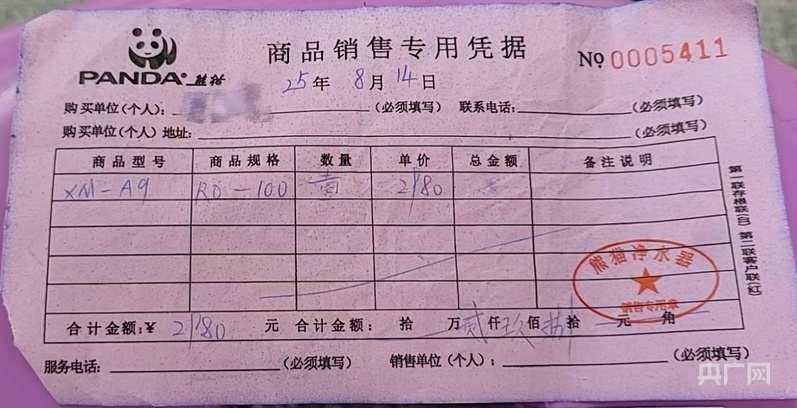 PANDA® 熊猫
商品销售专用凭据
No 0005411
25年 8月 14日
购买单位(个人):(必须填写) 联系电话:(必须填写)
购买单位(个人)地址:(必须填写)
商品型号 商品规格 数量 单价 总金额 备注说明
XM-A9 RO-100 壹 2980
合计金额:¥ 2980 元 合计金额: 拾 万 贰仟 玖佰 捌拾 元 角
服务电话:(必须填写) 销售单位(个人):(必须填写)
第一联存根联(白) 第二联客户联(红)
熊猫净水器
销售专用章
央广网